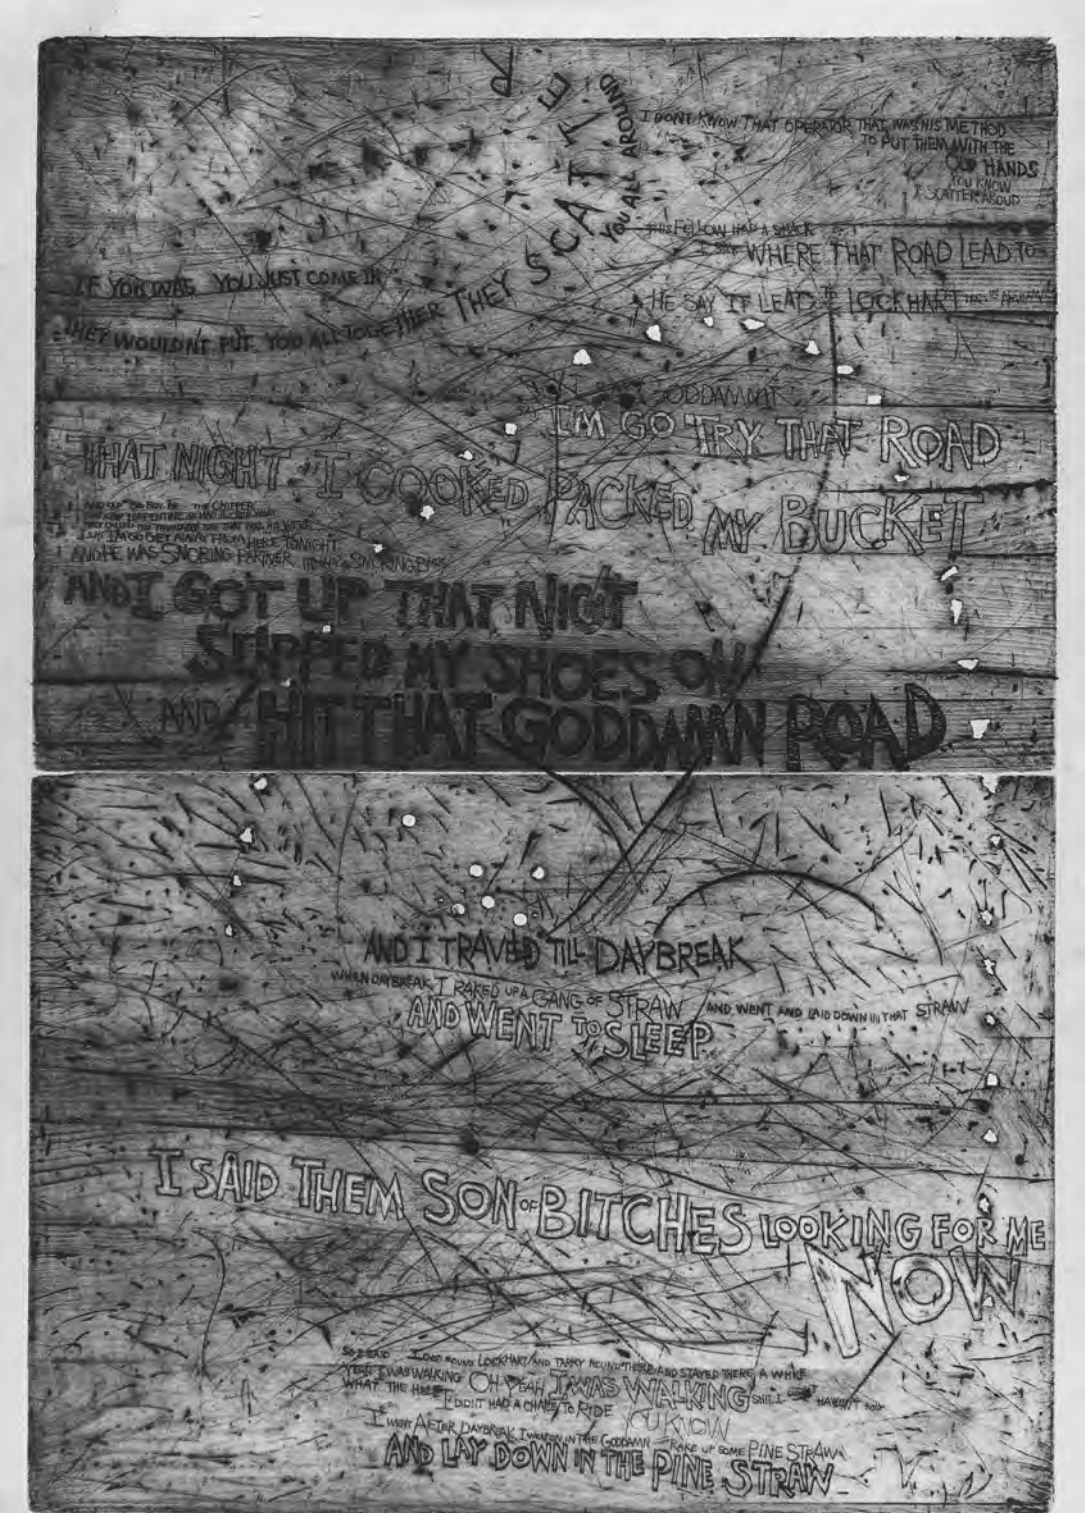 IF YOU WAS YOU JUST COME IN
THEY WOULDN'T PUT YOU ALL TOGETHER THEY SCATTER
YOU ALL AROUND
I DON'T KNOW THAT OPERATOR THAT WAS HIS METHOD
TO PUT THEM WITH THE
OLD HANDS
YOU KNOW
THIS FELLOW HAD A SHACK
I SAY WHERE THAT ROAD LEAD TO
HE SAY IT LEADS TO LOCKHART
GODDAMN IT
I'M GO TRY THAT ROAD
THAT NIGHT I COOKED PACKED MY BUCKET
THE CHIPPER
I'M GO GET AWAY FROM HERE TONIGHT
AND HE WAS SNORING PARTNER
AND I GOT UP THAT NIGT
SLIPPED MY SHOES ON
AND HIT THAT GODDAMN ROAD
AND I TRAVED TILL DAYBREAK
WHEN DAYBREAK I RAKED UP A GANG OF STRAW AND WENT AND LAID DOWN IN THAT STRAW
AND WENT TO SLEEP
I SAID THEM SON OF BITCHES LOOKING FOR ME
NOW
SO I SAID I GOT ROUND LOCKHART AND TARRY ROUND THERE AND STAYED THERE A WHILE
YEAH I WAS WALKING OH YEAH I WAS WALKING SHIT I
WHAT THE HELL I DIDNT HAD A CHANCE TO RIDE YOU KNOW
I WENT AFTER DAYBREAK I WENT ON IN THE GODDAMN RAKE UP SOME PINE STRAW
AND LAY DOWN IN THE PINE STRAW